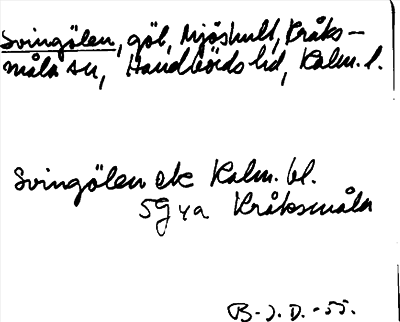 Svingölen, göl, Mjöshult, Kråks-
måla sn, Handbörds hd, Kalm. l.
Svingölen ek Kalm. bl.
5g ya Kråksmåla
B-J. D. -55.